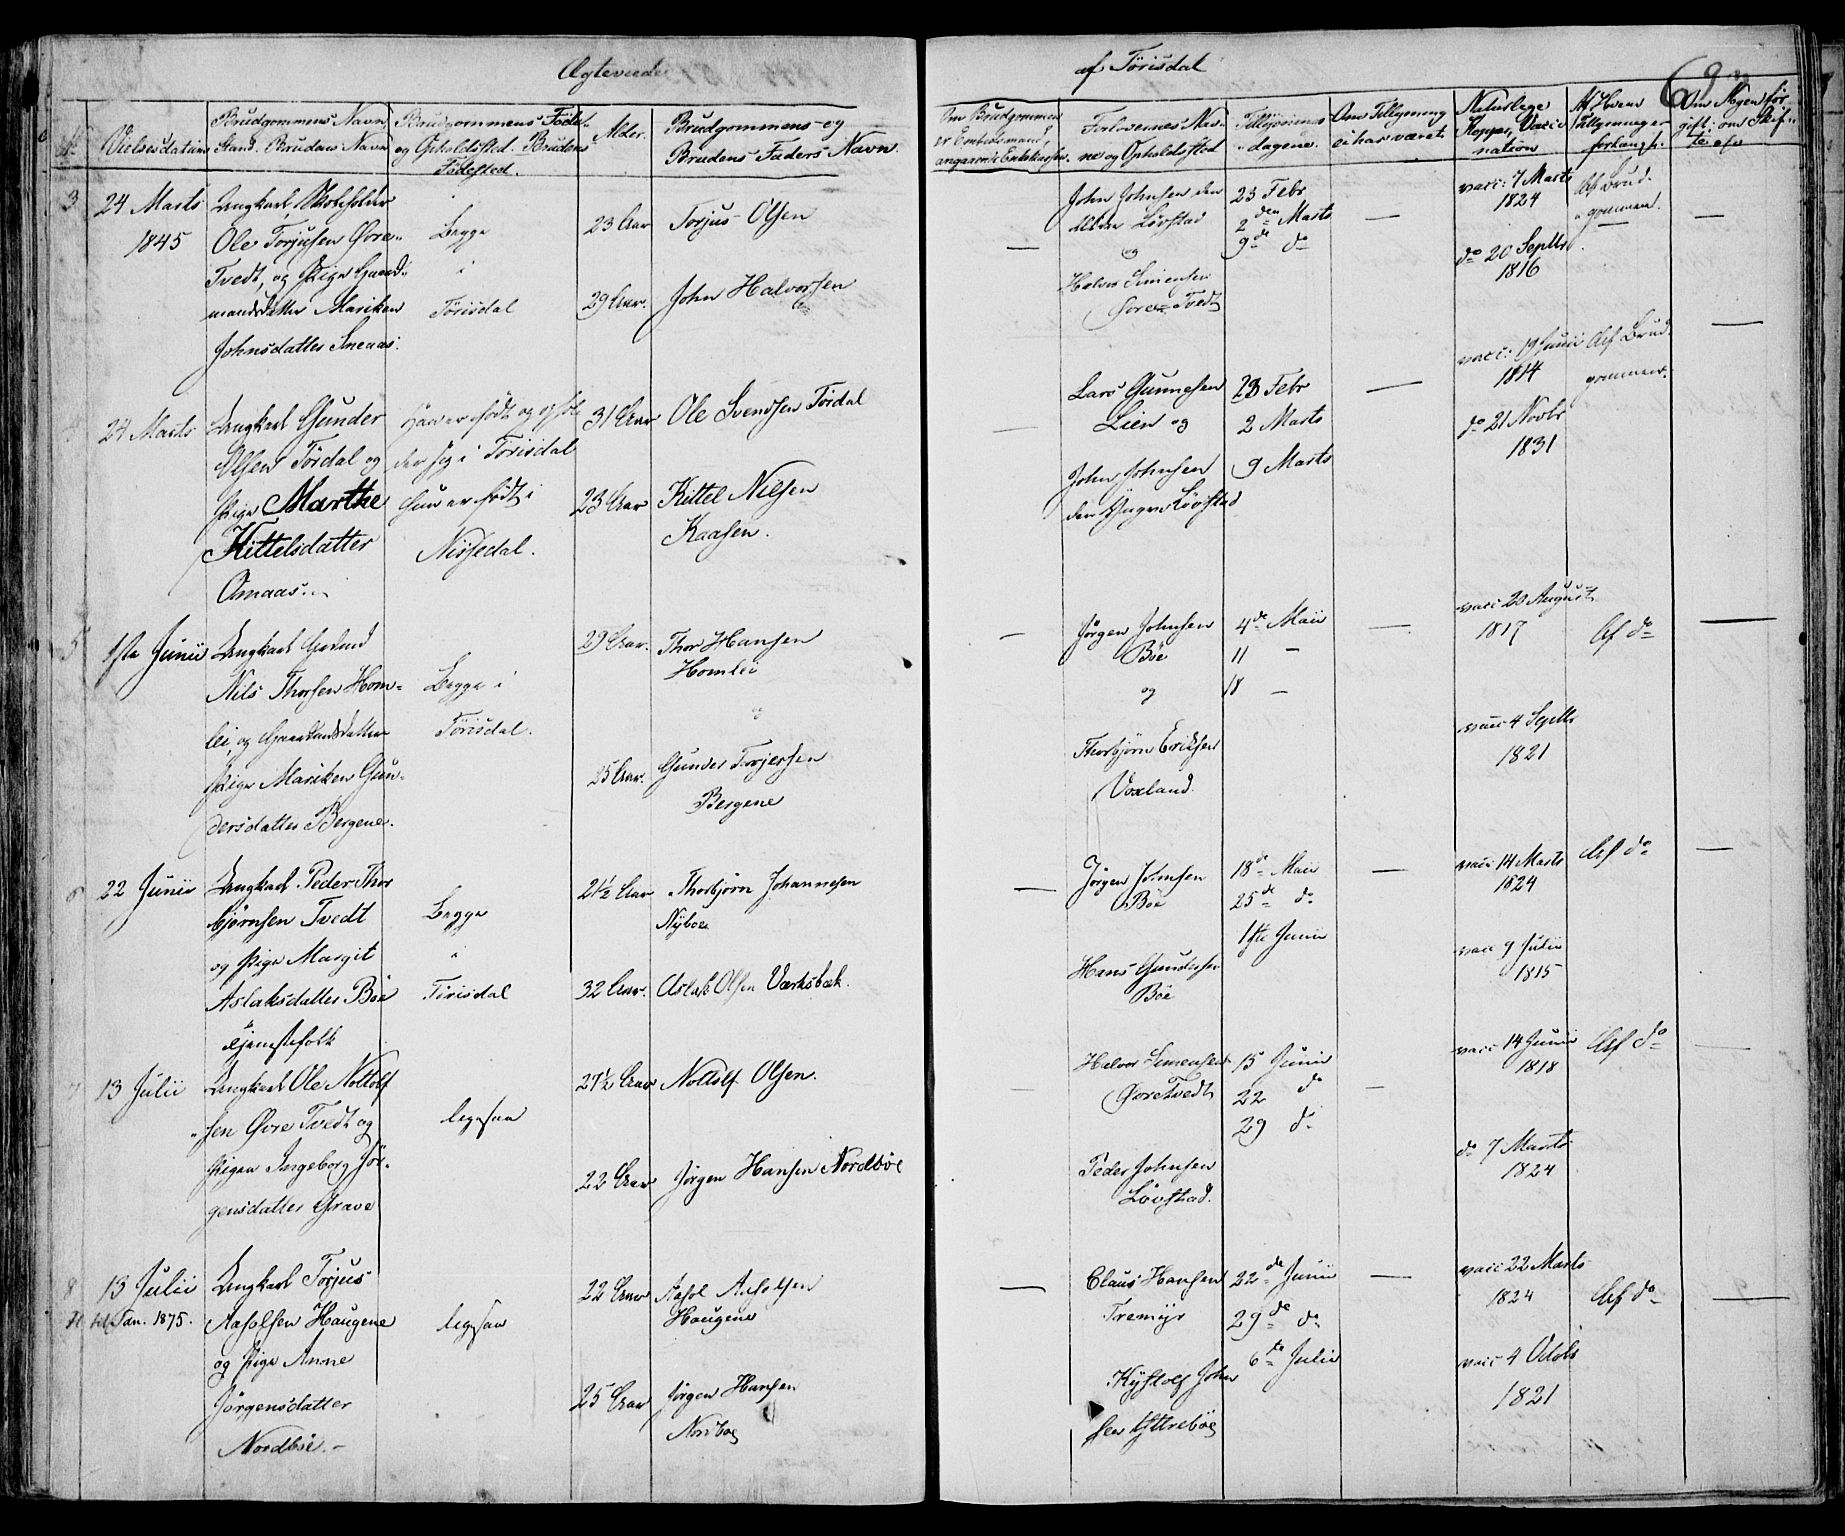 Ægteviede
af Törisdal
69
No
Vielsesdatum
Brudgommens Navn
Stand. Brudens Navn
Brudgommens Föde-
og Opholdsted. Brudens
Födested.
Alder.
Brudgommens og
Brudens Faders Navn
Om Brudgommen
er Embedsmand,
Forlovernes Nav-
ne og Opholdssted
Tillysnings
dagene.
Om Tillysning
ei har været.
Naturlige
Kopper, Vacci
nation
Af Hvem
Tillysning er
forlangt.
Om Nogen för
gift; om Skif-
te er
3
24 Marts
1845
Ungkarl,
Ole Torjusen Övre-
Tvedt, og Pige Gaard-
mandsdatter Mariken
Johnsdatter Sneaas.
Begge
i
Törisdal
23 Aar
29 Aar.
Torjus Olsen
John Halvorsen
—
John Johnsen den
Ældre Lövstad
og
Halvor Simensen
Övre Tvedt
23 Febr
2den Marts
9de do
—
vacc: 7 Marts
1824
do 20 Septbr
1816
Af Brud-
gommen.
—
4
24 Marts
Ungkarl Gunder
Olsen Tördal og
Pige Marthe
Kittelsdatter
Omaas.
Han er födt og opholder
sig i Törisdal
Hun er födt i
Nissedal.
31 Aar
23 Aar
Ole Svendsen Tördal
Kittel Nilsen
Kaasen.
—
Lars Gunnesen
Lien og
John Johnsen
den Yngre Lövstad
23 Febr
2 Marts
9 Marts
—
vacc: 19 Junii
1814
do 21 Novbr
1831
Af Brud-
gommen.
—
5
1ste Junii
Ungkarl
Nils Thorsen Hom-
lei, og Gaardmandsdatter
Pige Mariken Gun-
dersdatter Bergene.
Begge i
Törisdal.
29 Aar.
25 Aar.
Thor Hansen
Homlei
Gunder Torjersen
Bergene
—
Jörgen Johnsen
Böe
og
Thorbjörn Eriksen
Voxland.
4de Maii
11 —
18 —
—
vacc 20 August
1817
vacc 4 Septbr
1821
Af do
—
6
22 Junii
Ungkarl Peder Thor
björnsen Tvedt
og Pige Margit
Aslaksdatter Böe
Tjenestefolk
Begge
i
Törisdal
21½ Aar
32 Aar.
Thorbjörn Johannesen
Nyboe
Aslak Olsen Værksbæk.
—
Jörgen Johnsen
Böe
Hans Gundersen
Böe
18de Maii
25de do
1ste Junii
—
vacc 14 Marts
1824
vacc 9 Julii
1815
Af do
—
7
13 Julii
Ungkarl Ole Nottolf
sen Övre Tvedt og
Pigen Ingeborg Jör-
gensdatter Grave
ligesaa
27½ Aar
22 Aar
Nottolf Olsen.
Jörgen Hansen Nordböe
—
Halvor Simensen
Övre Tvedt
Peder Johnsen
Lövstad.
15 Junii
22 do
29 do
—
vacc 14 Junii
1818
do 7 Marts
1824
Af do
—
8
13 Julii
Jan. 1875.
Ungkarl Torjus
Aasolsen Haugene
og Pige Anne
Jörgensdatter
Nordböe.
ligesaa
22 Aar
25 Aar
Aasol Aasolsen
Haugene
Jörgen Hansen
Nordböe
—
Claus Hansen
Tremyr
Kystolf John
sen Yttreböe
22de Junii
29de do
6te Julii
—
vacc 22 Marts
1824
vacc 4 Octob
1821
Af do
—